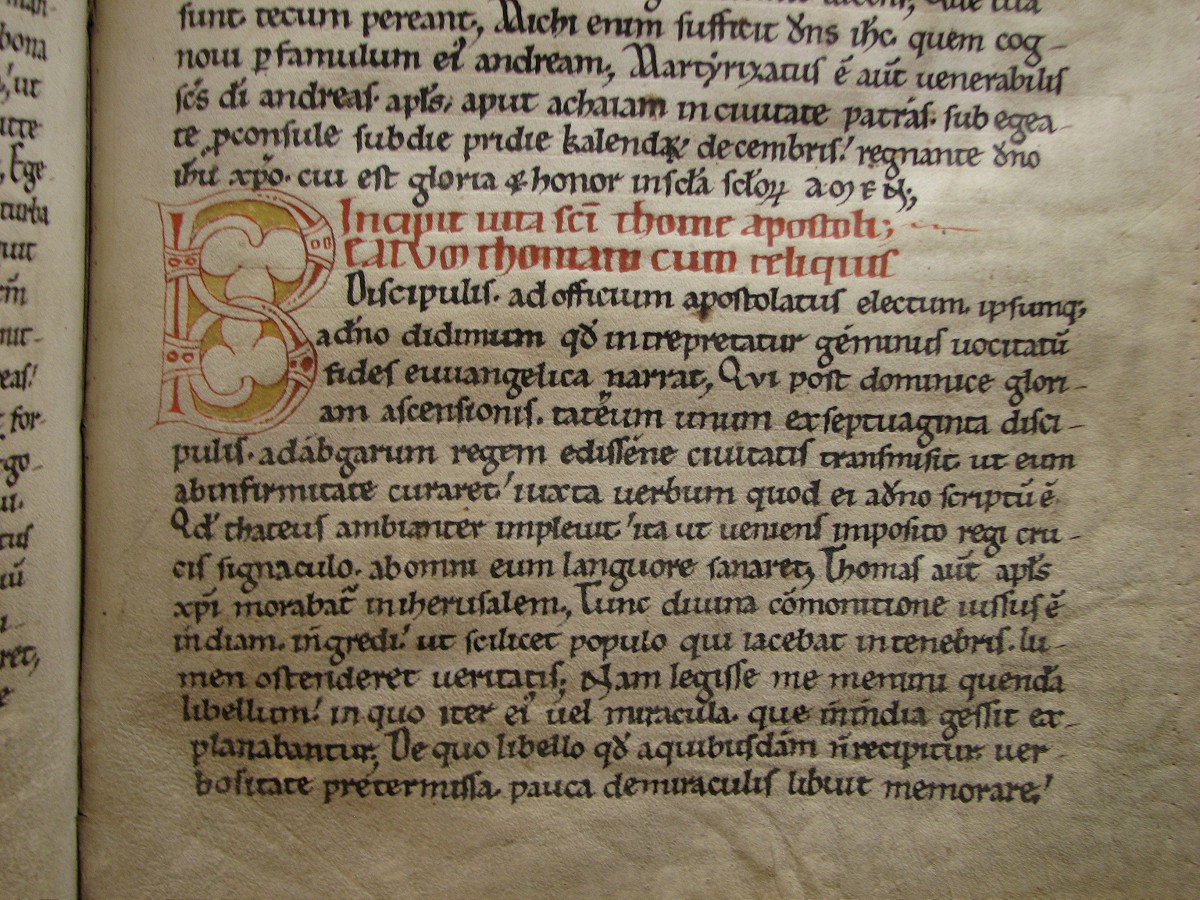 sunt tecum pereant, Michi enim sufficit dn̄s ih̄c. quem cog-
noui ꝑ famulum ei' andream; Martyrixatus ē aut̄ uenerabilis
sc̄s dī andreas. apl̄s. aput achaiam in ciuitate patras. sub egea-
te ꝓconsule sub die pridie kalendaꝝ decembris.' regnante dn̄o
ih̄u xp̄o. cui est gloria & honor in scl̄a scl̄oꝝ AMEN;
Incipit uita sc̄i thome apostoli;
BEATUM thomam cum reliquis
Discipulis. ad officium apostolatus electum. ipsumq;
a dn̄o didimum qđ interpretatur geminus uocitatū
fides euuangelica narrat, Qui post dominice glori-
am ascensionis. tateum unum ex septuaginta disci-
pulis. ad abgarum regem edissene ciuitatis transmisit. ut eum
ab infirmitate curaret.' iuxta uerbum quod ei a dn̄o scriptū ē.
Qđ thateus ambianter impleuit.' ita ut ueniens imposito regi cru-
cis signaculo. ab omni eum languore sanaret, Thomas aut̄ apl̄s
xp̄i morabat̄ in iherusalem, Tunc diuina cōmonitione iussus ē
indiam. ingredi.' ut scilicet populo qui iacebat in tenebris. lu-
men ostenderet ueritatis; Nam legisse me memini quendā
libellum.' in quo iter ei' uel miracula. que in india gessit ex-
planabantur, De quo libello qđ a quibusdam n̄ recipitur uer-
bositate pretermissa. pauca de miraculis libuit memorare.'
bona
ut
Ege
turba
uit
cm̄
nit-
eas.'
for-
rgo-
ui.
tus
ret,